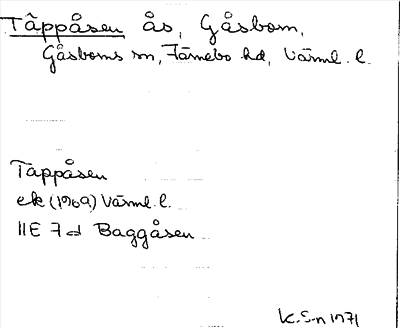 Täppåsen ås, Gåsbom,
Gåsboms sn, Färnebo hd, Värml. l.
Täppåsen
ek (1969) Värml. l.
11E 7d Baggåsen
K.S-n 1971